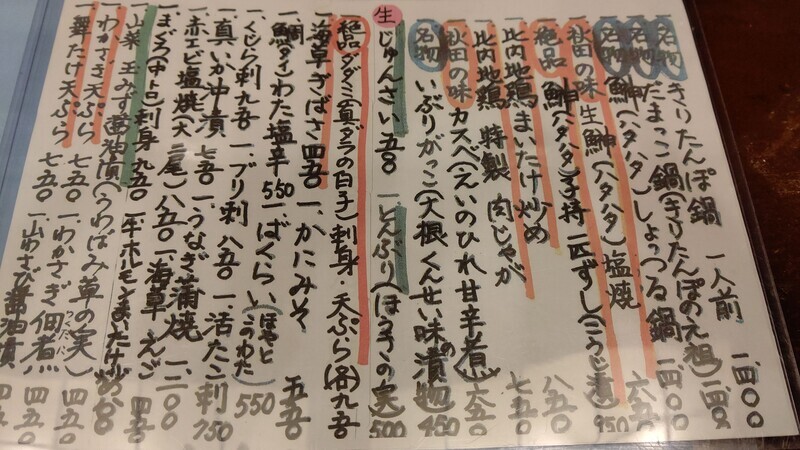 名物 きりたんぽ鍋 一人前 一、四〇〇
名物 だまっこ鍋(きりたんぽの元祖)一、四〇〇
名物 鰰(ハタハタ)しょっつる鍋 一、四〇〇
名物 鰰(ハタハタ)塩焼 六五〇
秋田の味 生鰰(ハタハタ)
鰰(ハタハタ)子持一匹ずし(こうじ漬)950
絶品 比内地鶏まいたけ炒め 八五〇
比内地鶏 特製 肉じゃが 七五〇
秋田の味 カスベ(えいのひれ甘辛煮)六五〇
名物 いぶりがっこ(大根くんせい味の漬物)450
生 じゅんさい 五五〇 一、とんぶり(ほうきの実)500
絶品 ダダミ(真ダラの白子)刺身・天ぷら(各)九五〇
一、海草ぎばさ 四五〇 一、かにみそ 五五〇
一、鯛(タイ)わた塩辛 550 一、ばくらい(ほやとこのわた)550
一、くじら刺 九五〇 一、ブリ刺 八五〇 一、活たこ刺 750
一、真いか沖漬 七五〇 一、うなぎ蒲焼 一、二〇〇
一、赤エビ塩焼(大二尾)八五〇 一、海草えご 四五〇
一、まぐろ(中トロ)刺身 九五〇 一、牛ホルモンまいたけ炒め
一、山菜 玉みず醤油漬(うわばみ草の実)四五〇
一、わかさぎ天ぷら 七五〇 一、わかさぎ佃煮 四五〇
一、舞たけ天ぷら 七五〇 一、山わさび醤油漬 四五〇